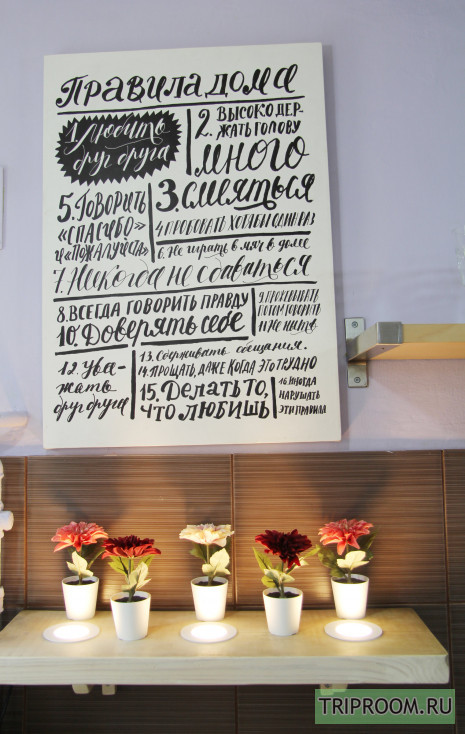 Правила дома
1. Любить
друг друга
2. ВЫСОКО ДЕР-
ЖАТЬ ГОЛОВУ
много
3. смеяться
4. ПРОБОВАТЬ ХОТЯ БЫ ОДИН РАЗ
5. ГОВОРИТЬ
«СПАСИБО»
и «ПОЖАЛУЙСТА»
6. Не играть в мяч в доме
7. Никогда не сдаваться
8. ВСЕГДА ГОВОРИТЬ ПРАВДУ
ПОТОМ ГОВОРИТЬ
10. Доверять себе
12. Ува-
жать
друг друга
13. Сдерживать обещания.
14. ПРОЩАТЬ, ДАЖЕ КОГДА ЭТО ТРУДНО
15. Делать то,
что любишь
16. ИНОГДА
НАРУШАТЬ
ЭТИ ПРАВИЛА
TRIPROOM.RU